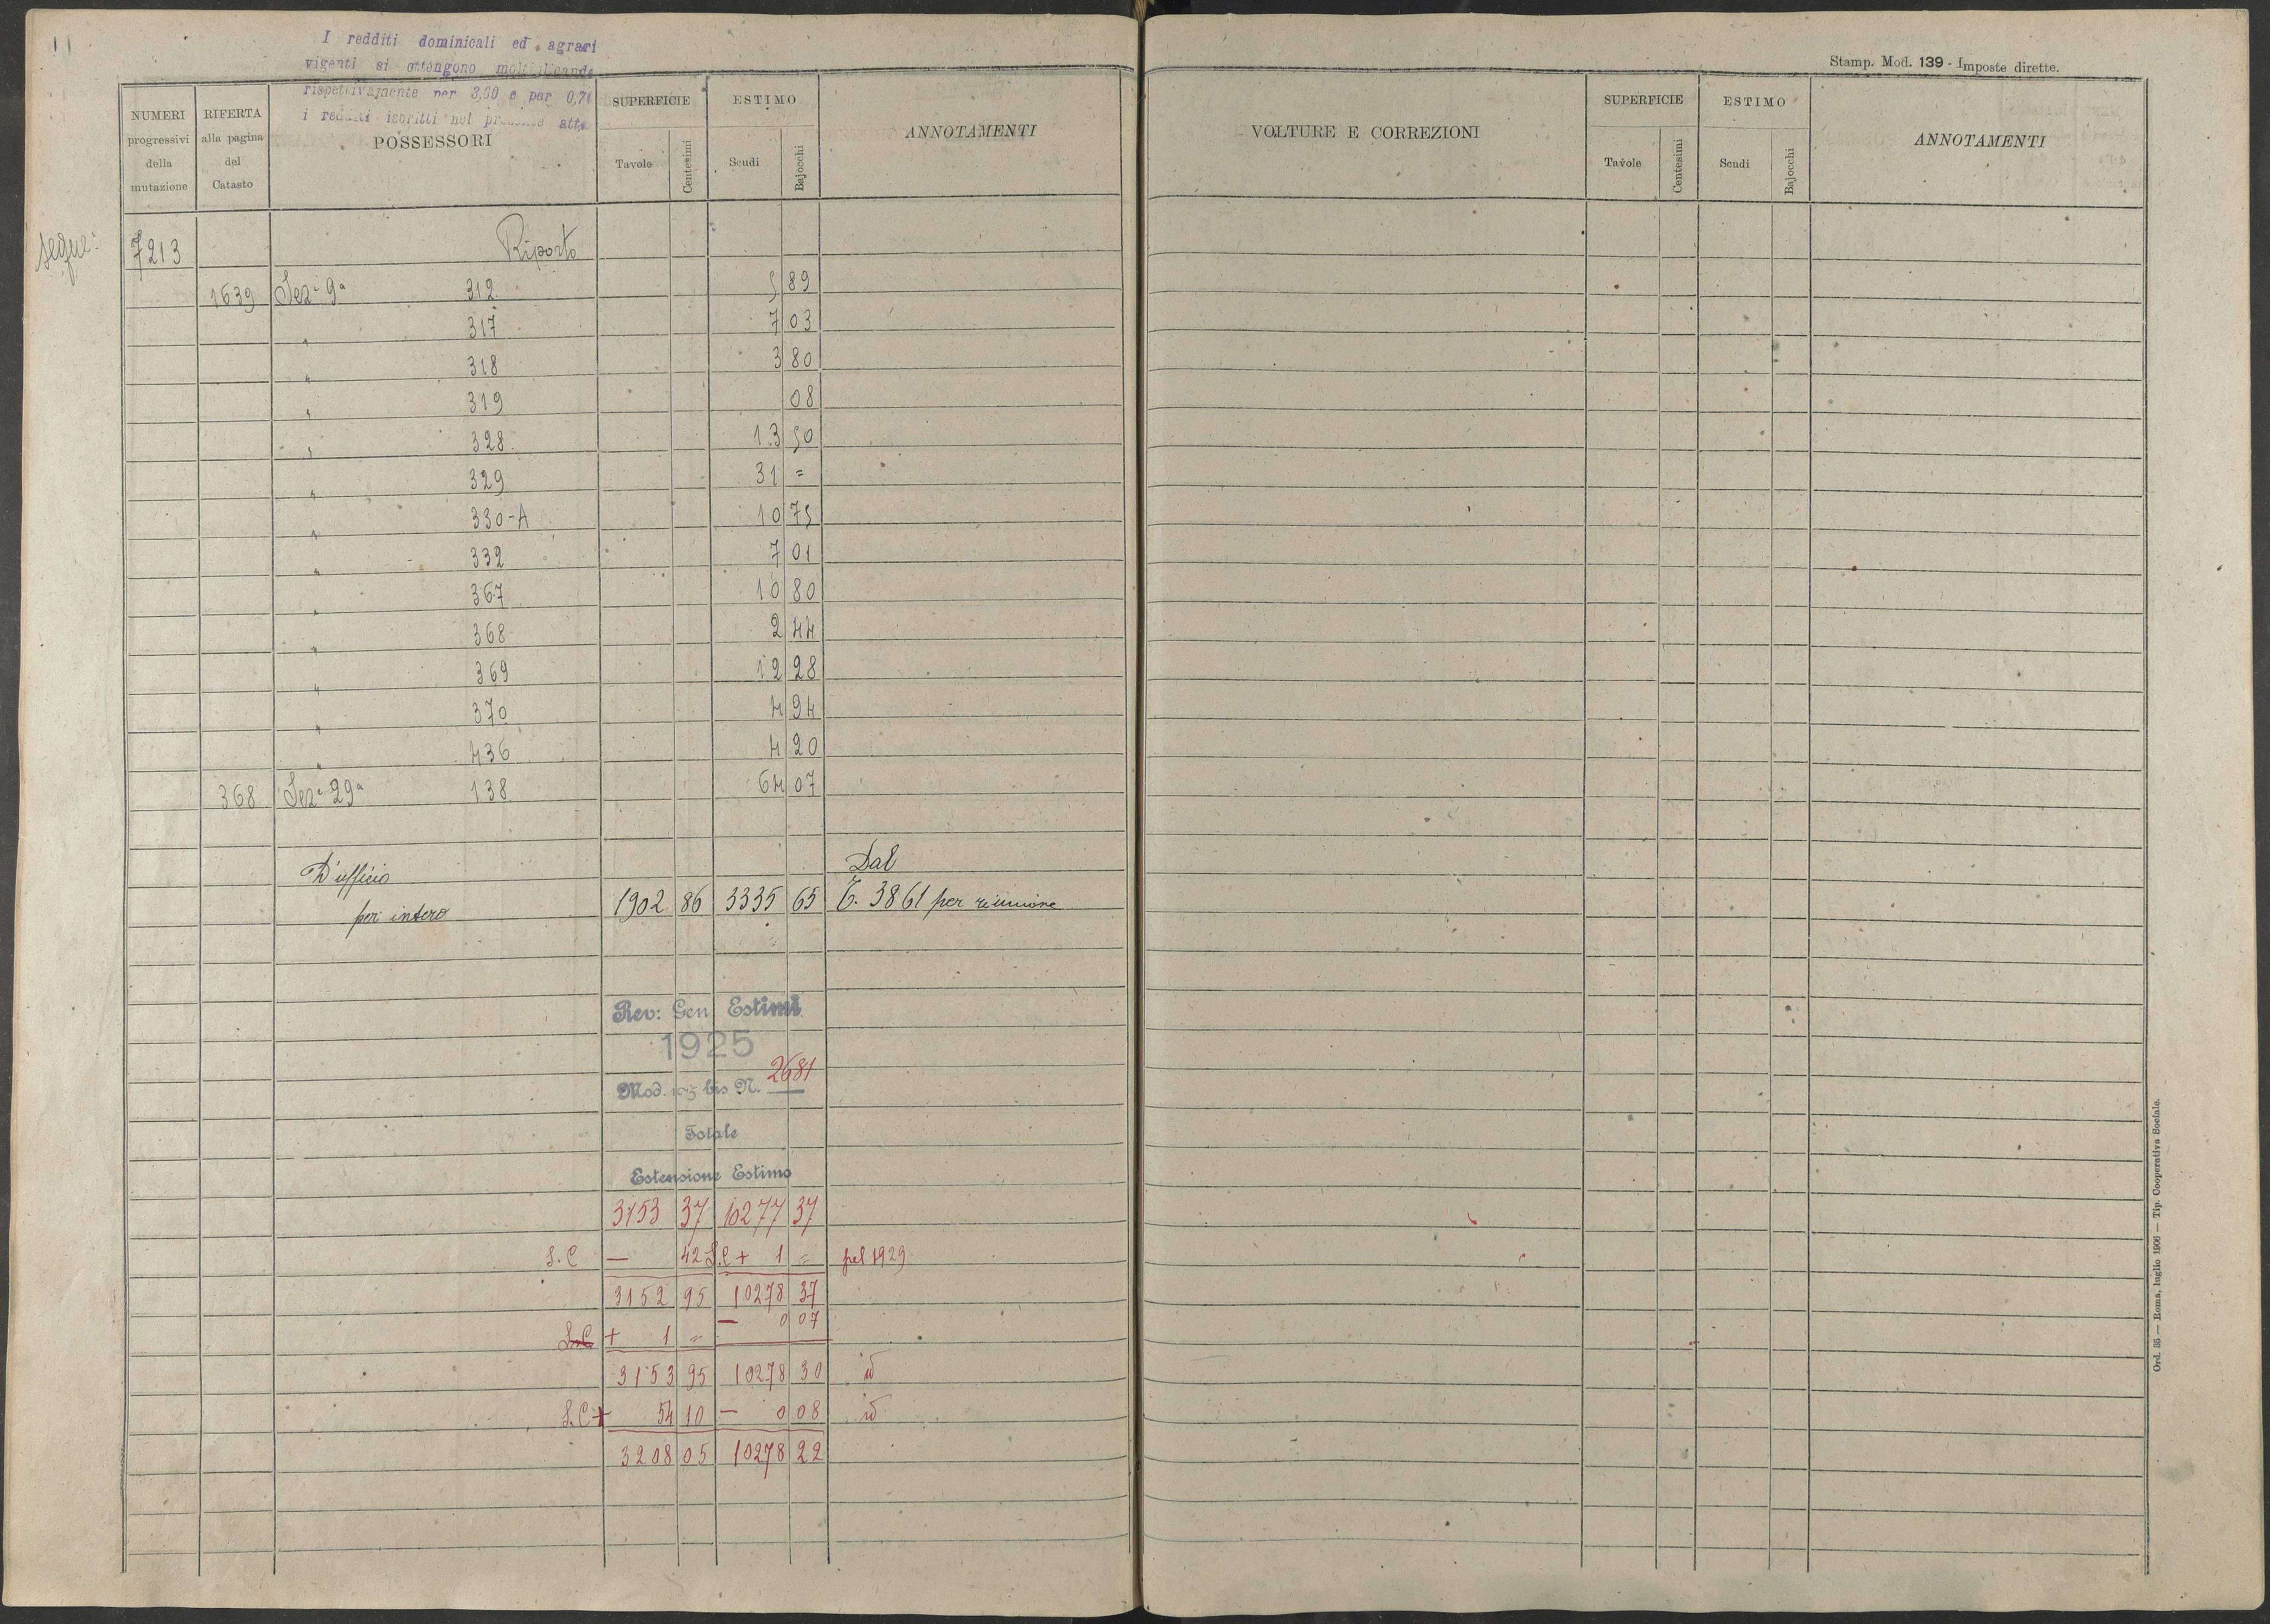 I redditi dominicali ed agrari
vigenti si ottengono moltiplicando
rispettivamente per 3,60 e per 0,7
i redditi iscritti nel presente atto
NUMERI progressivi della mutazione
RIFERTA alla pagina del Catasto
POSSESSORI
SUPERFICIE
Tavole Centesimi
ESTIMO
Scudi Bajocchi
ANNOTAMENTI
segue: 7213 Riporto
1639 Sez.e 9a 312 5 89
" 317 7 03
" 318 3 80
" 319 08
" 328 13 50
" 329 31 =
" 330-A 10 75
" 332 7 01
" 367 10 80
" 368 2 44
" 369 12 28
" 370 4 94
" 436 4 20
368 Sez.e 29a 138 64 07
D'ufficio Dal
per intero 1902 86 3335 65 T. 3861 per riunione
Rev: Gen Estimi
1925
Mod. 105 bis N. 2681
Totale
Estensione Estimo
3153 37 10277 37
S.C — 42 S.C + 1 = pel 1929
3152 95 10278 37
— 0 07
S.C + 1 =
3153 95 10278 30 id
S.C + 54 10 — 0 08 id
3208 05 10278 22
Stamp. Mod. 139 - Imposte dirette.
VOLTURE E CORREZIONI
SUPERFICIE
Tavole Centesimi
ESTIMO
Scudi Bajocchi
ANNOTAMENTI
Ord. 35 — Roma, luglio 1906 — Tip. Cooperativa Sociale.